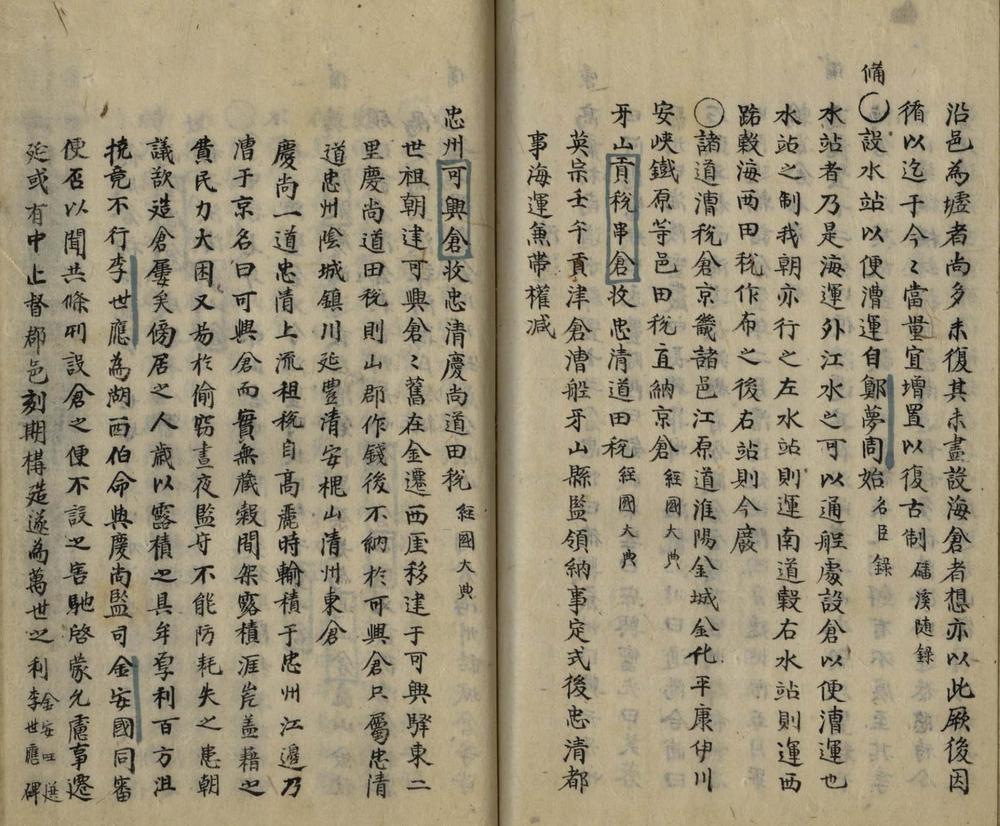 沿邑為墟者尚多未復其未盡設海倉者想亦以此厥後因
循以迄于今〻當量宜增置以復古制磻溪随錄
備
〇設水站以便漕運自鄭夢周始名臣錄
水站者乃是海運外江水之可以通舡處設倉以便漕運也
水站之制我朝亦行之左水站則運南道穀右水站則運西
路穀海西田稅作布之後右站則今廢
〇諸道漕稅倉京畿諸邑江原道淮陽金城金化平康伊川
安峽鐵原等邑田稅直納京倉經國大典
牙山貢稅串倉收忠清道田稅經國大典
英宗壬午貢津倉漕船牙山縣監領納事定式後忠清都
事海運兼帶權減
忠州可興倉收忠清慶尚道田稅經國大典
世祖朝建可興倉〻舊在金遷西厓移建于可興驛東二
里慶尚道田稅則山郡作錢後不納於可興倉只屬忠清
道忠州陰城鎮川延豊清安槐山清州東倉
慶尚一道忠清上流租稅自高麗時輸積于忠州江邊乃
漕于京名曰可興倉而實無蔵穀間架露積涯岸盖藉之
費民力大困又易於偷竊晝夜監守不能防耗失之患朝
議欲造倉屢矣傍居之人歲以露積之具牟利百方沮
撓竟不行李世應為湖西伯命與慶尚監司金安國同審
便否以聞共條列設倉之便不設之害馳啓蒙允慮事遷
延或有中止督郡邑刻期構造遂為萬世之利金安国撰李世應碑